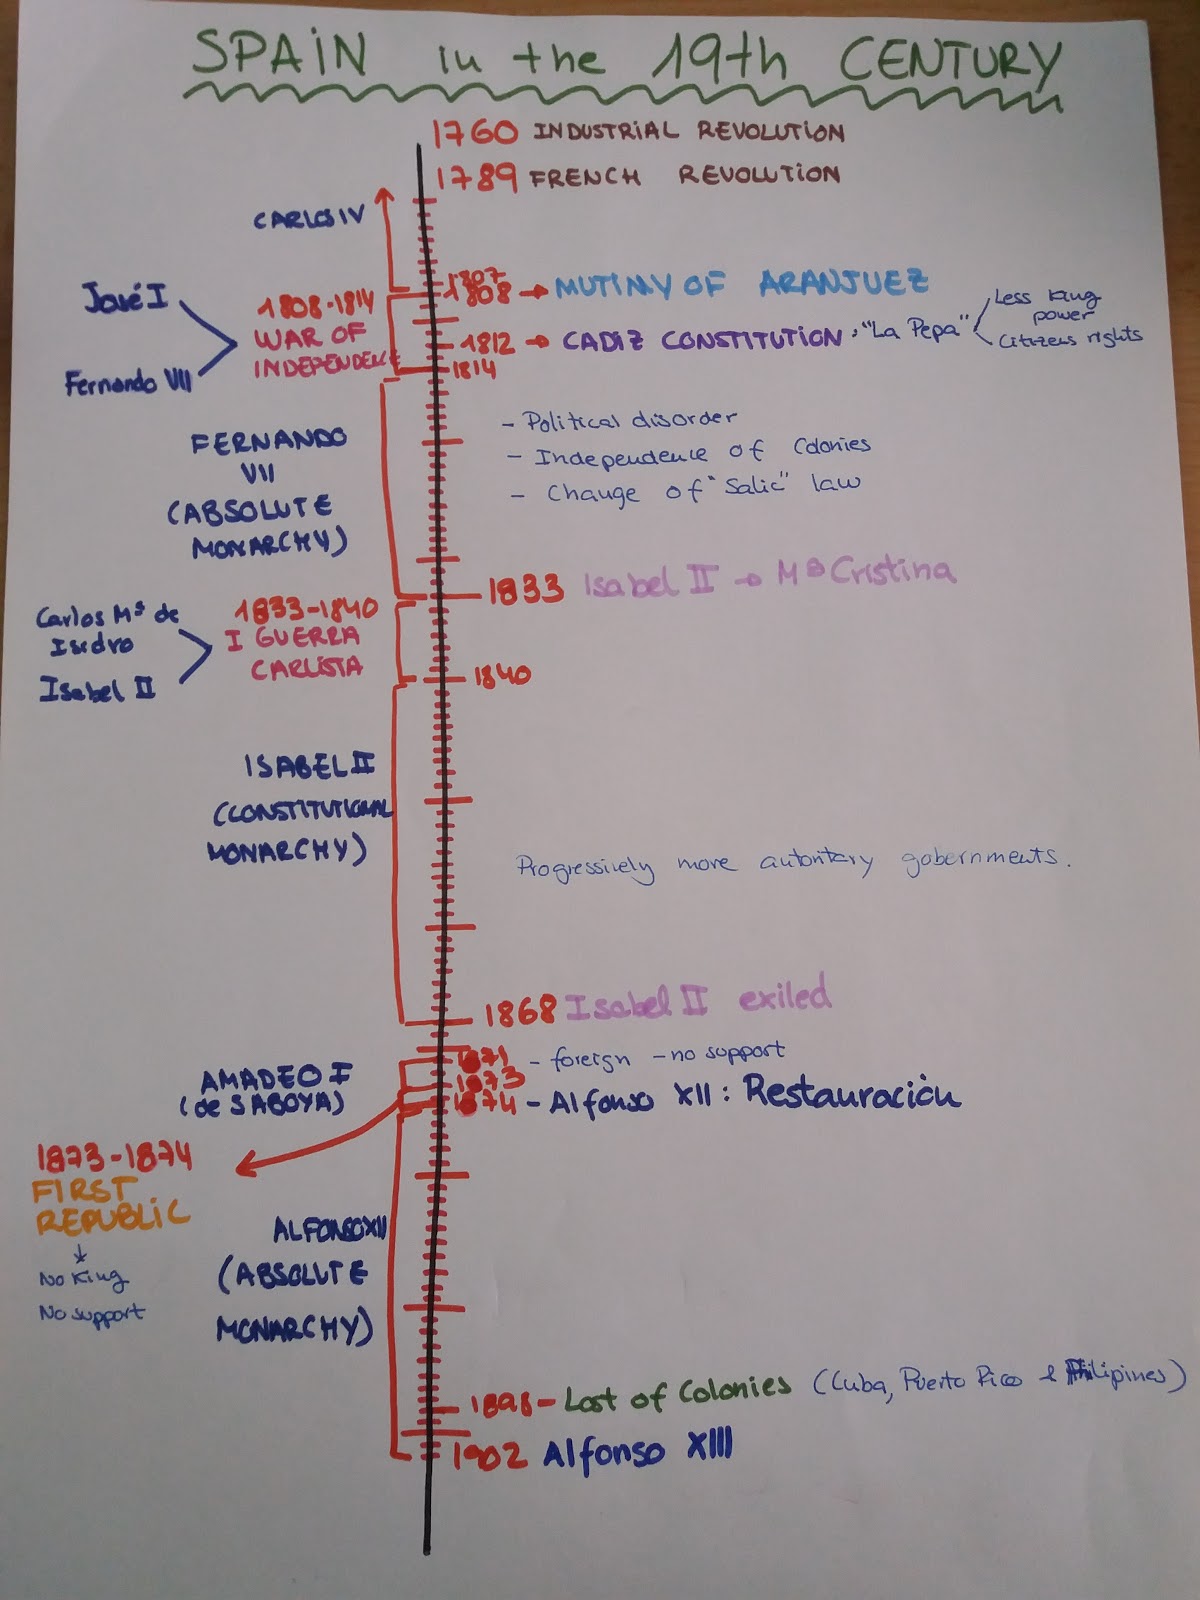 SPAIN in the 19th CENTURY
1760 INDUSTRIAL REVOLUTION
1789 FRENCH REVOLUTION
CARLOS IV
1807
1808 → MUTINY OF ARANJUEZ
José I
Fernando VII
1808-1814
WAR OF
INDEPENDENCE
1812 → CADIZ CONSTITUTION: "La Pepa"
Less king
power
Citizens rights
1814
FERNANDO
VII
(ABSOLUTE
MONARCHY)
- Political disorder
- Independence of Colonies
- Change of "Salic" law
1833 Isabel II → Mª Cristina
Carlos Mª de
Isidro
Isabel II
1833-1840
I GUERRA
CARLISTA
1840
ISABEL II
(CONSTITUTIONAL
MONARCHY)
Progressively more autoritary gobernments.
1868 Isabel II exiled
AMADEO I
(de SABOYA)
1871 - foreign - no support
1873
1874 - Alfonso XII: Restauración
1873-1874
FIRST
REPUBLIC
↓
No King
No support
ALFONSO XII
(ABSOLUTE
MONARCHY)
1898 - Lost of Colonies (Cuba, Puerto Rico & Philipines)
1902 Alfonso XIII